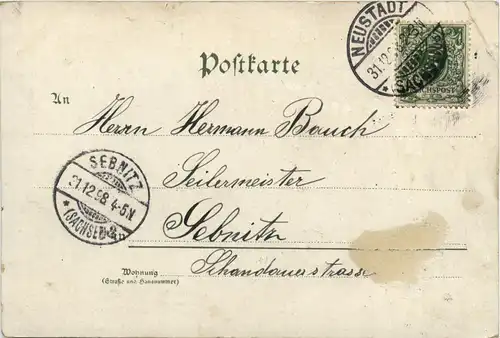 NEUSTADT
31.12.98
SACHSEN
REICHSPOST
Postkarte
An
Herrn Hermann Bauch
SEBNITZ
31.12.98 4-5N
*(SACHSEN)
Seilermeister
in Sebnitz
Wohnung
(Straße und Hausnummer)
Schandauerstrasse